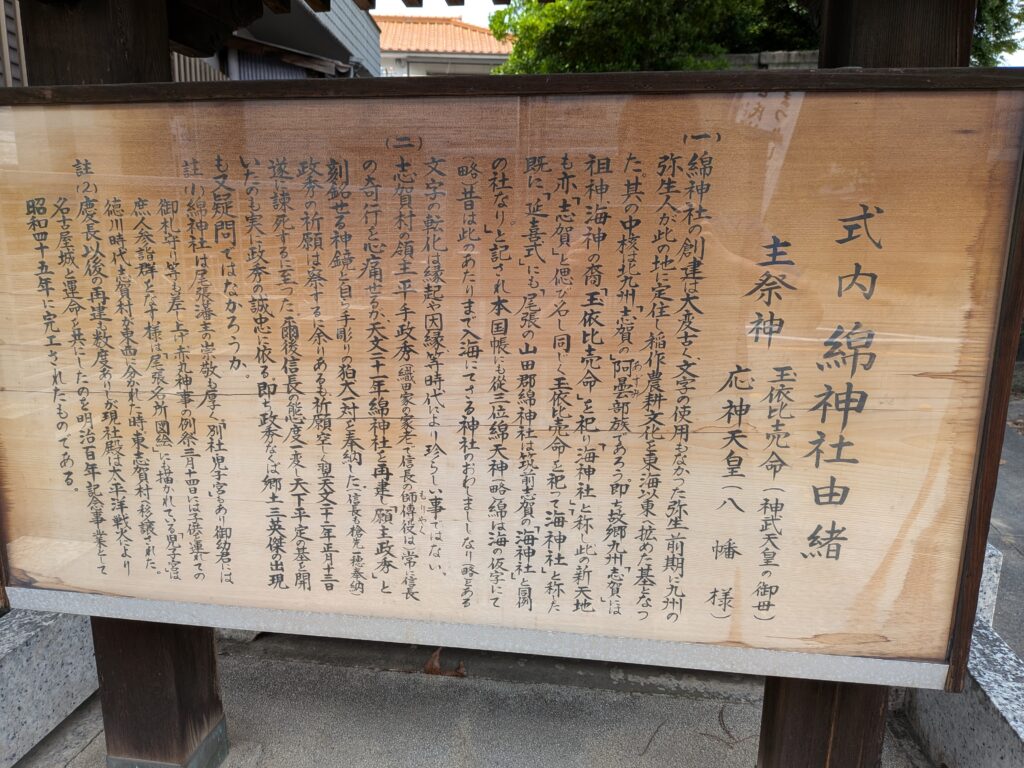 式内 綿神社由緒
主祭神 玉依比売命(神武天皇の御母)
応神天皇(八幡様)
(一)
綿神社の創建は大変古く文字の使用もなかった弥生前期に九州の
弥生人が此の地に定住し稲作農耕文化を東海以東へ拡めた基となつ
た。其の中核は北九州「志賀」の「阿曇部族」であろう。即ち故郷九州「志賀」には
あずみ
祖神「海神の裔「玉依比売命」を祀り海神社と称し此の新天地
も亦「志賀」と偲び名し同じく玉依比売命を祀って「海神社」と称した
既に「延喜式」にも「尾張の山田郡綿神社は筑前志賀の「海神社」と同例
の社なり。」と記され本国帳にも従三位綿天神(略)綿は海の仮字にて
(略)昔は此のあたりまで入海にてさる神社のおわしまししなり(略)とある
文字の転化は縁起や因縁等時代により珍らしい事ではない。
(二)
志賀村の領主平手政秀(織田家の家老で信長の師傅役)は常に信長
もりやく
の奇行を心痛せるが、天文二十一年綿神社を再建し「願主政秀」と
刻銘せる神鏡と自ら手彫りの狛犬一対を奉納した(信長も槍先一穂奉納
政秀の祈願は察するに余りあるも祈願空しく翌天文二十二年正月十三日
遂に諫死するに至った。爾後信長の態度一変し天下平定の基を開
いたのも実に政秀の誠忠に依る即ち政秀なくば郷土三英傑の出現
も又疑問ではなかろうか。
註(1)綿神社は尾張藩主の崇敬も厚く「別社児子宮」もあり御幼君には
御札守り等も差し上げ赤丸神事の例祭三月十四日には子供を連れての
庶人参詣群をなす様は尾張名所図絵にも描かれている児子宮は
徳川時代志賀村が東西に分かれた時東志賀村へ移譲された。
註(2)慶長以後の再建も数度ありしが現社殿は太平洋戦火により
名古屋城と運命を共にしたのを明治百年記念事業として
昭和四十五年に完工されたものである。